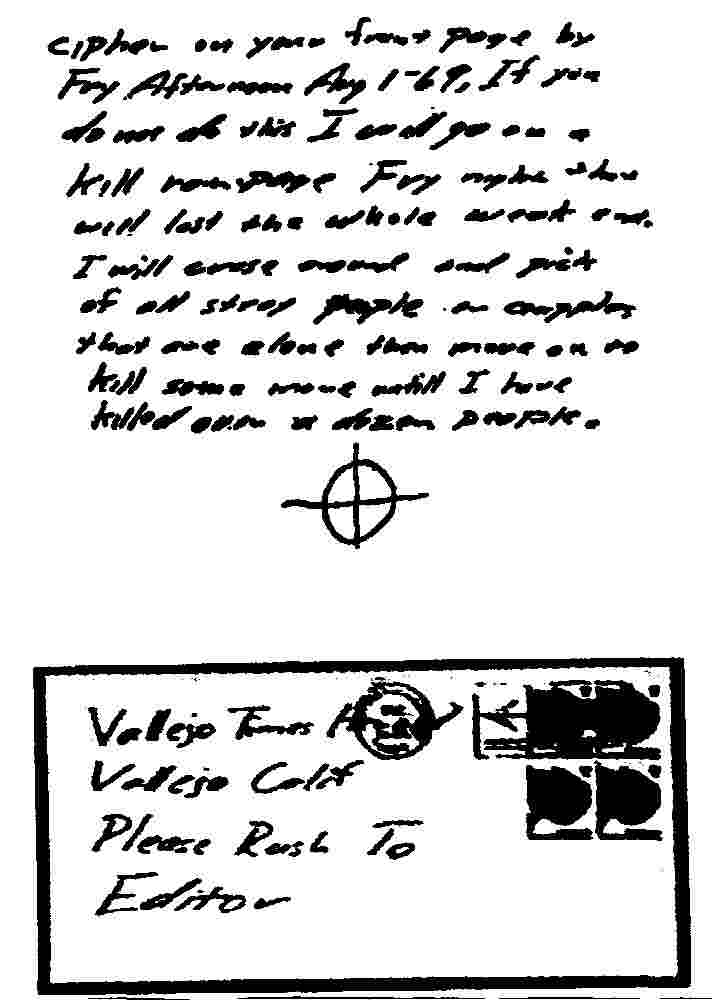 cipher on your front page by
Fry Afternoon Aug 1-69, If you
do not do this I will go on a
kill rampage Fry night that
will last the whole week end.
I will cruse around and pick
of all stray people or coupples
that are alone then move on to
kill some more untill I have
killed over a dozen people.
Vallejo Times
Vallejo Calif
Please Rush To
Editor